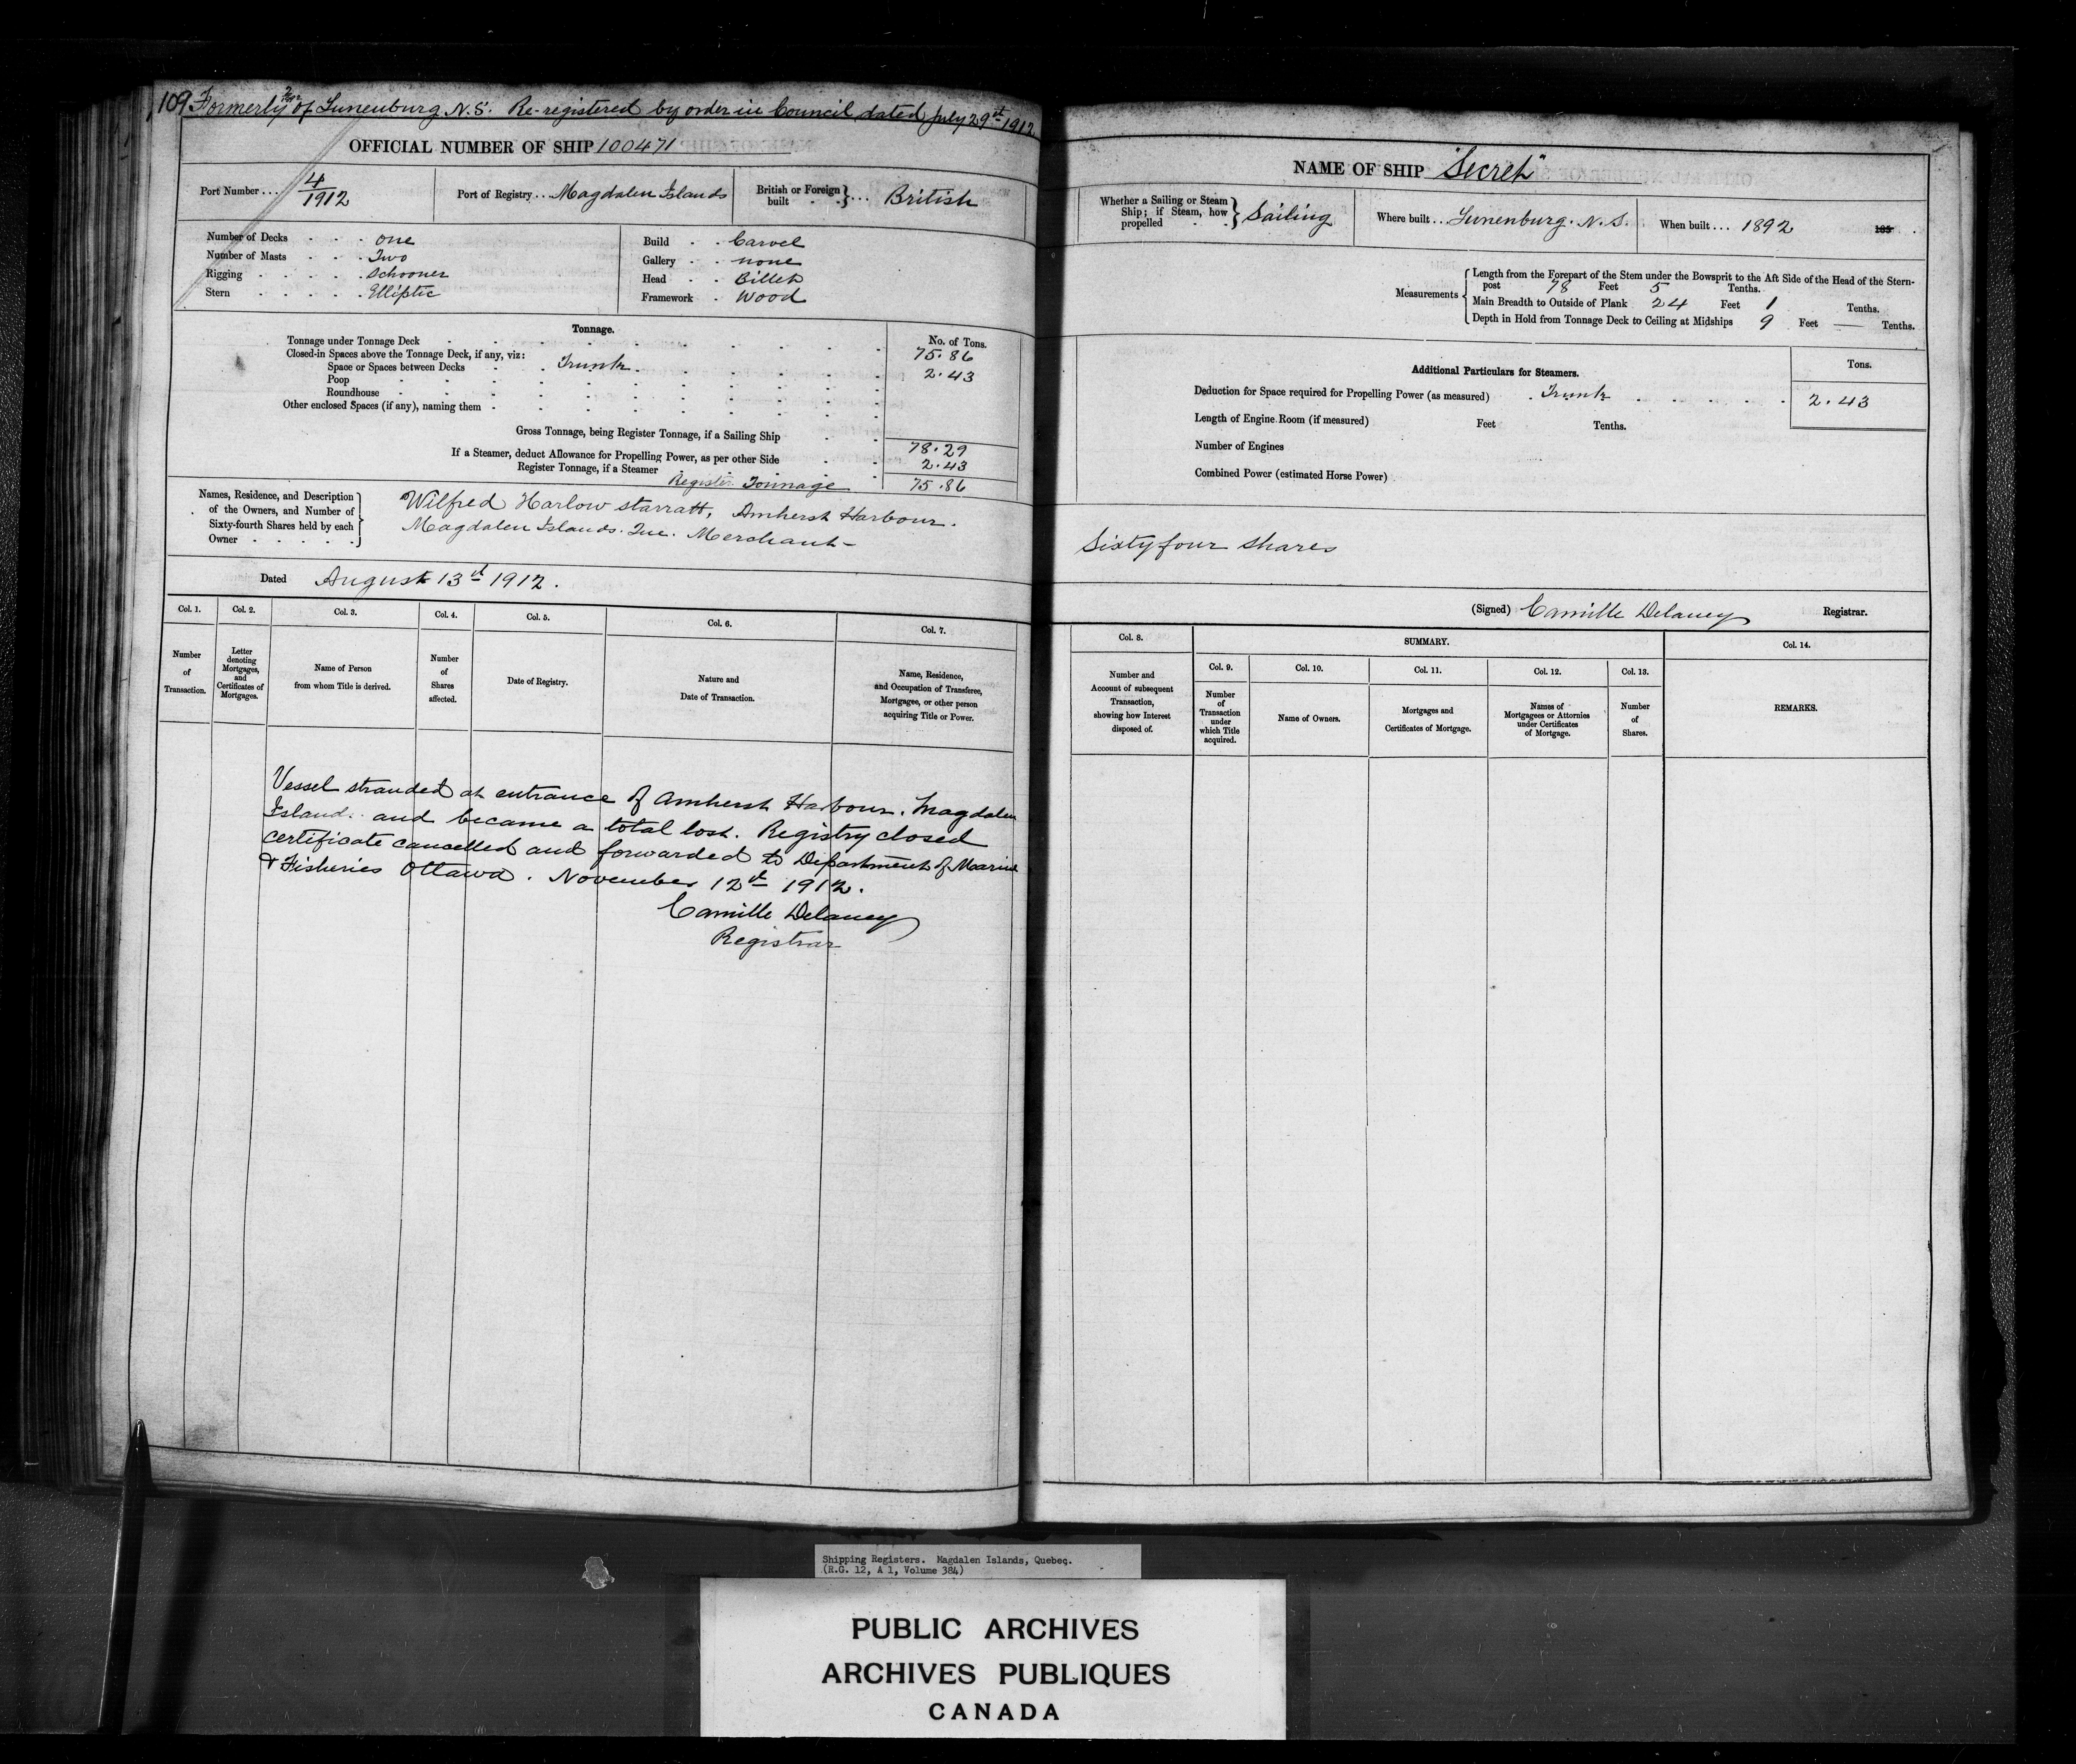 109 Formerly of Lunenburg N.S. Re-registered by order in Council dated July 29st 1912
OFFICIAL NUMBER OF SHIP 100471
Port Number ... 4/1912
Port of Registry ... Magdalen Islands
British or Foreign built } ... British
Number of Decks . . . One
Number of Masts . . . Two
Rigging . . . . Schooner
Stern . . . . . Elliptic
Build . . Carvel
Gallery . . none
Head . . Billet
Framework . Wood
Tonnage.
No. of Tons.
Tonnage under Tonnage Deck 75.86
Closed-in Spaces above the Tonnage Deck, if any, viz:
Space or Spaces between Decks . . Trunk . 2.43
Poop
Roundhouse
Other enclosed Spaces (if any), naming them
Gross Tonnage, being Register Tonnage, if a Sailing Ship 78.29
If a Steamer, deduct Allowance for Propelling Power, as per other Side 2.43
Register Tonnage, if a Steamer
Register Tonnage 75.86
Names, Residence, and Description
of the Owners, and Number of
Sixty-fourth Shares held by each
Owner . . . . .
Wilfred Harlow Starratt, Amherst Harbour.
Magdalen Islands. Que. Merchant -
Dated August 13st 1912.
Col. 1.
Col. 2.
Col. 3.
Col. 4.
Col. 5.
Col. 6.
Col. 7.
Number
of
Transaction.
Letter
denoting
Mortgages,
and
Certificates of
Mortgages.
Name of Person
from whom Title is derived.
Number
of
Shares
affected.
Date of Registry.
Nature and
Date of Transaction.
Name, Residence,
and Occupation of Transferee,
Mortgagee, or other person
acquiring Title or Power.
Vessel stranded at entrance of Amherst Harbour. Magdalen
Island. and became a total lost. Registry closed
certificate cancelled and forwarded to Department of Marine
& Fisheries Ottawa. November 12st 1912.
Camille Delaney
Registrar
NAME OF SHIP "Secret"
Whether a Sailing or Steam
Ship; if Steam, how
propelled . . } Sailing
Where built ... Lunenburg. N.S.
When built ... 1892 185
Measurements
Length from the Forepart of the Stem under the Bowsprit to the Aft Side of the Head of the Stern-
post 78 Feet 5 Tenths.
Main Breadth to Outside of Plank 24 Feet 1 Tenths.
Depth in Hold from Tonnage Deck to Ceiling at Midships 9 Feet — Tenths.
Additional Particulars for Steamers.
Tons.
Deduction for Space required for Propelling Power (as measured) . Trunk . 2.43
Length of Engine Room (if measured) Feet Tenths.
Number of Engines
Combined Power (estimated Horse Power)
Sixty four shares
(Signed) Camille Delaney Registrar.
Col. 8.
SUMMARY.
Col. 14.
Col. 9.
Col. 10.
Col. 11.
Col. 12.
Col. 13.
Number and
Account of subsequent
Transaction,
showing how Interest
disposed of.
Number
of
Transaction
under
which Title
acquired.
Name of Owners.
Mortgages and
Certificates of Mortgage.
Names of
Mortgagees or Attornies
under Certificates
of Mortgage.
Number
of
Shares.
REMARKS.
Shipping Registers. Magdalen Islands, Quebec.
(R.G. 12, A 1, Volume 384)
PUBLIC ARCHIVES
ARCHIVES PUBLIQUES
CANADA